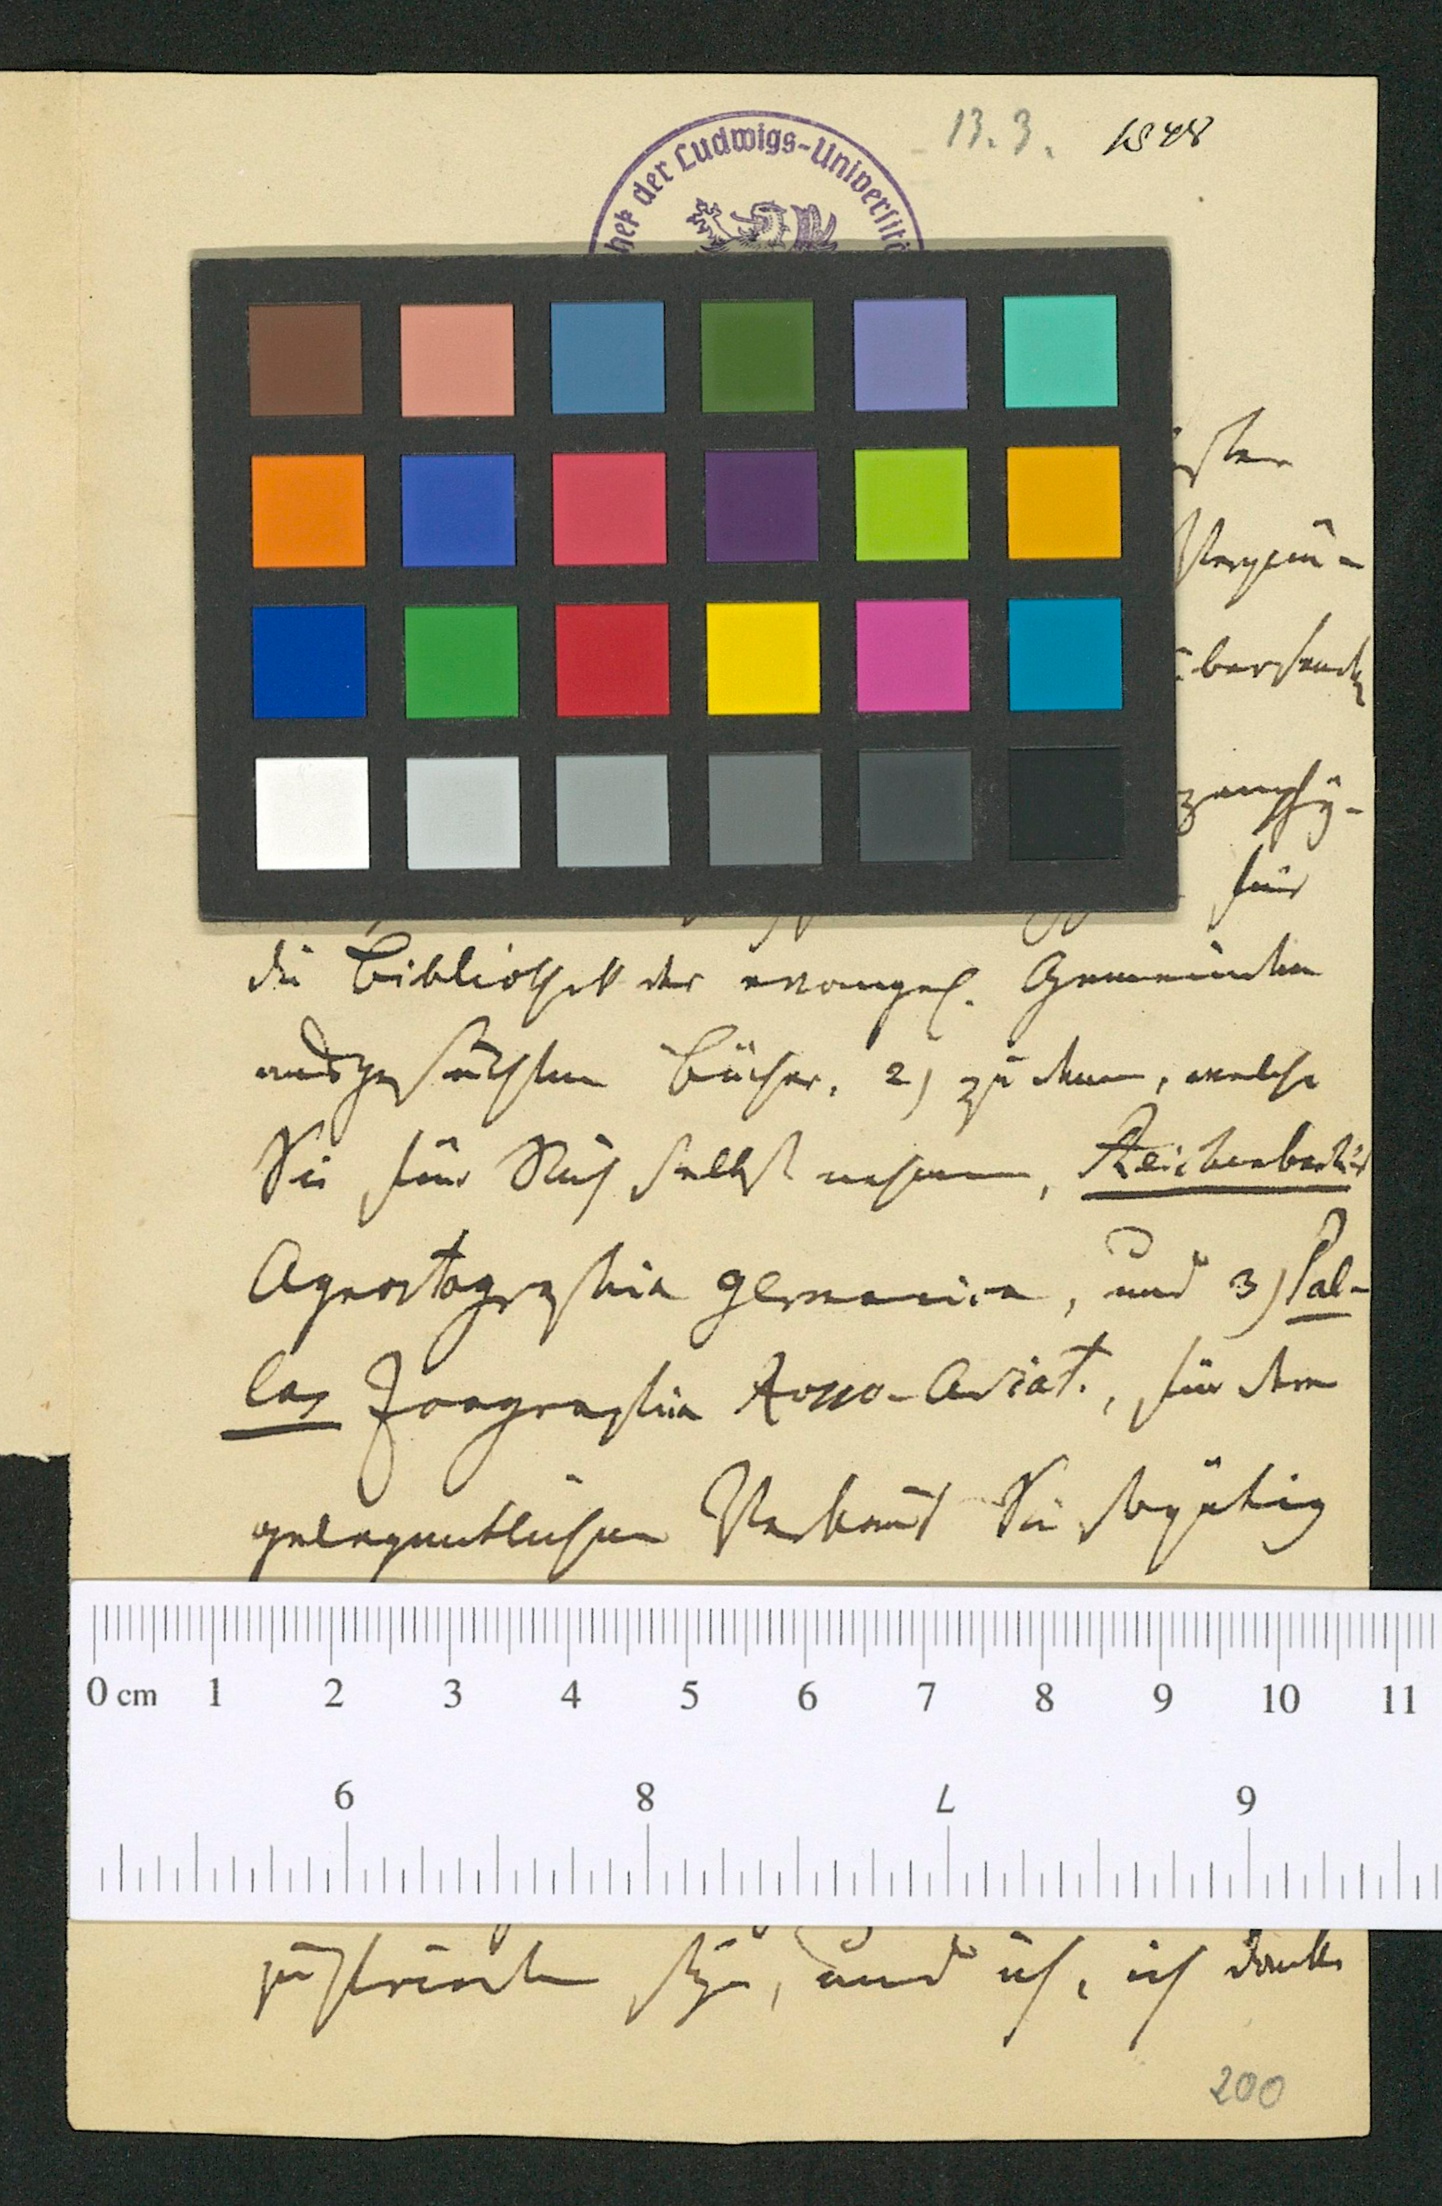 13.3. 1848
hek der Ludwigs-Universitä
für
die Bibliothek der evangel. Gemeinden
ausgesuchten Bücher, 2) zu denen, welche
Sie für Sich selbst nehmen, Reichenbach's
Agrostographia germanica, und 3) Pal-
las Zoographia Rosso-Asiat., für den
gelegentlichen Verkauf Sie so gütig
0 cm 1 2 3 4 5 6 7 8 9 10 11
6 8 7 9
und ich, ich danke
200